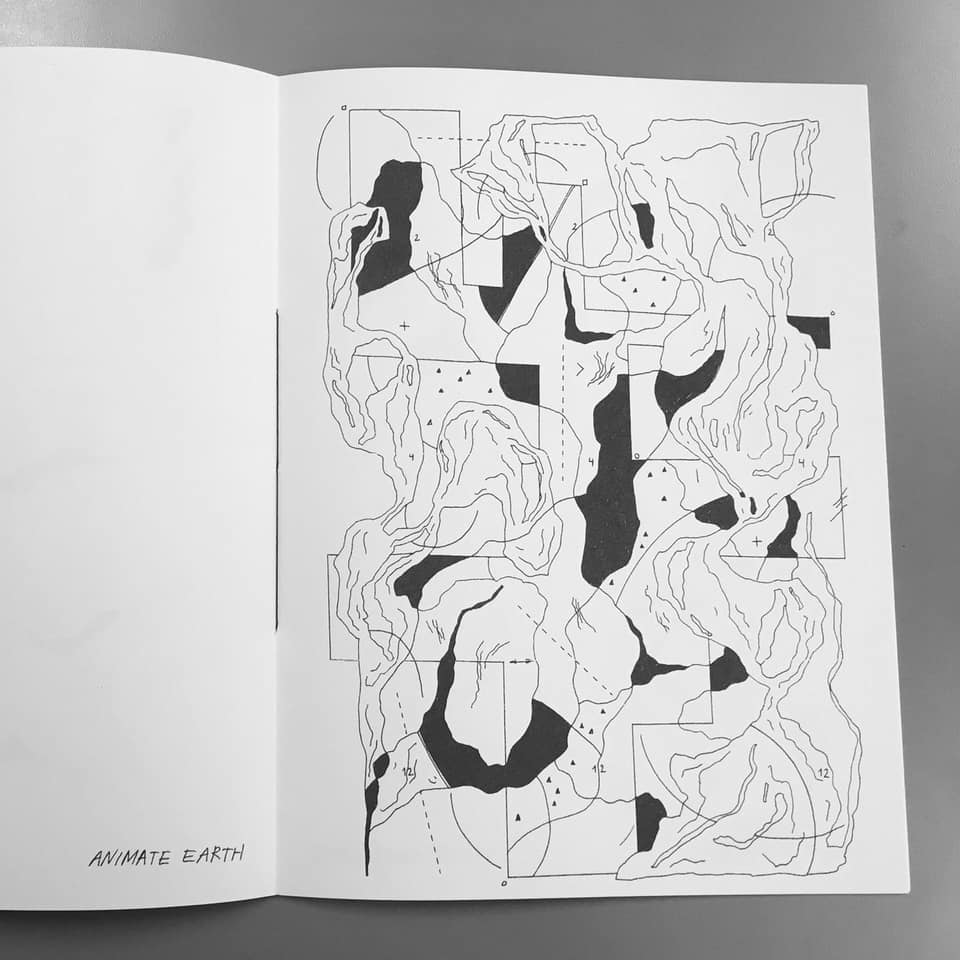 ANIMATE EARTH
2
2
2
4
4
4
12
12
12